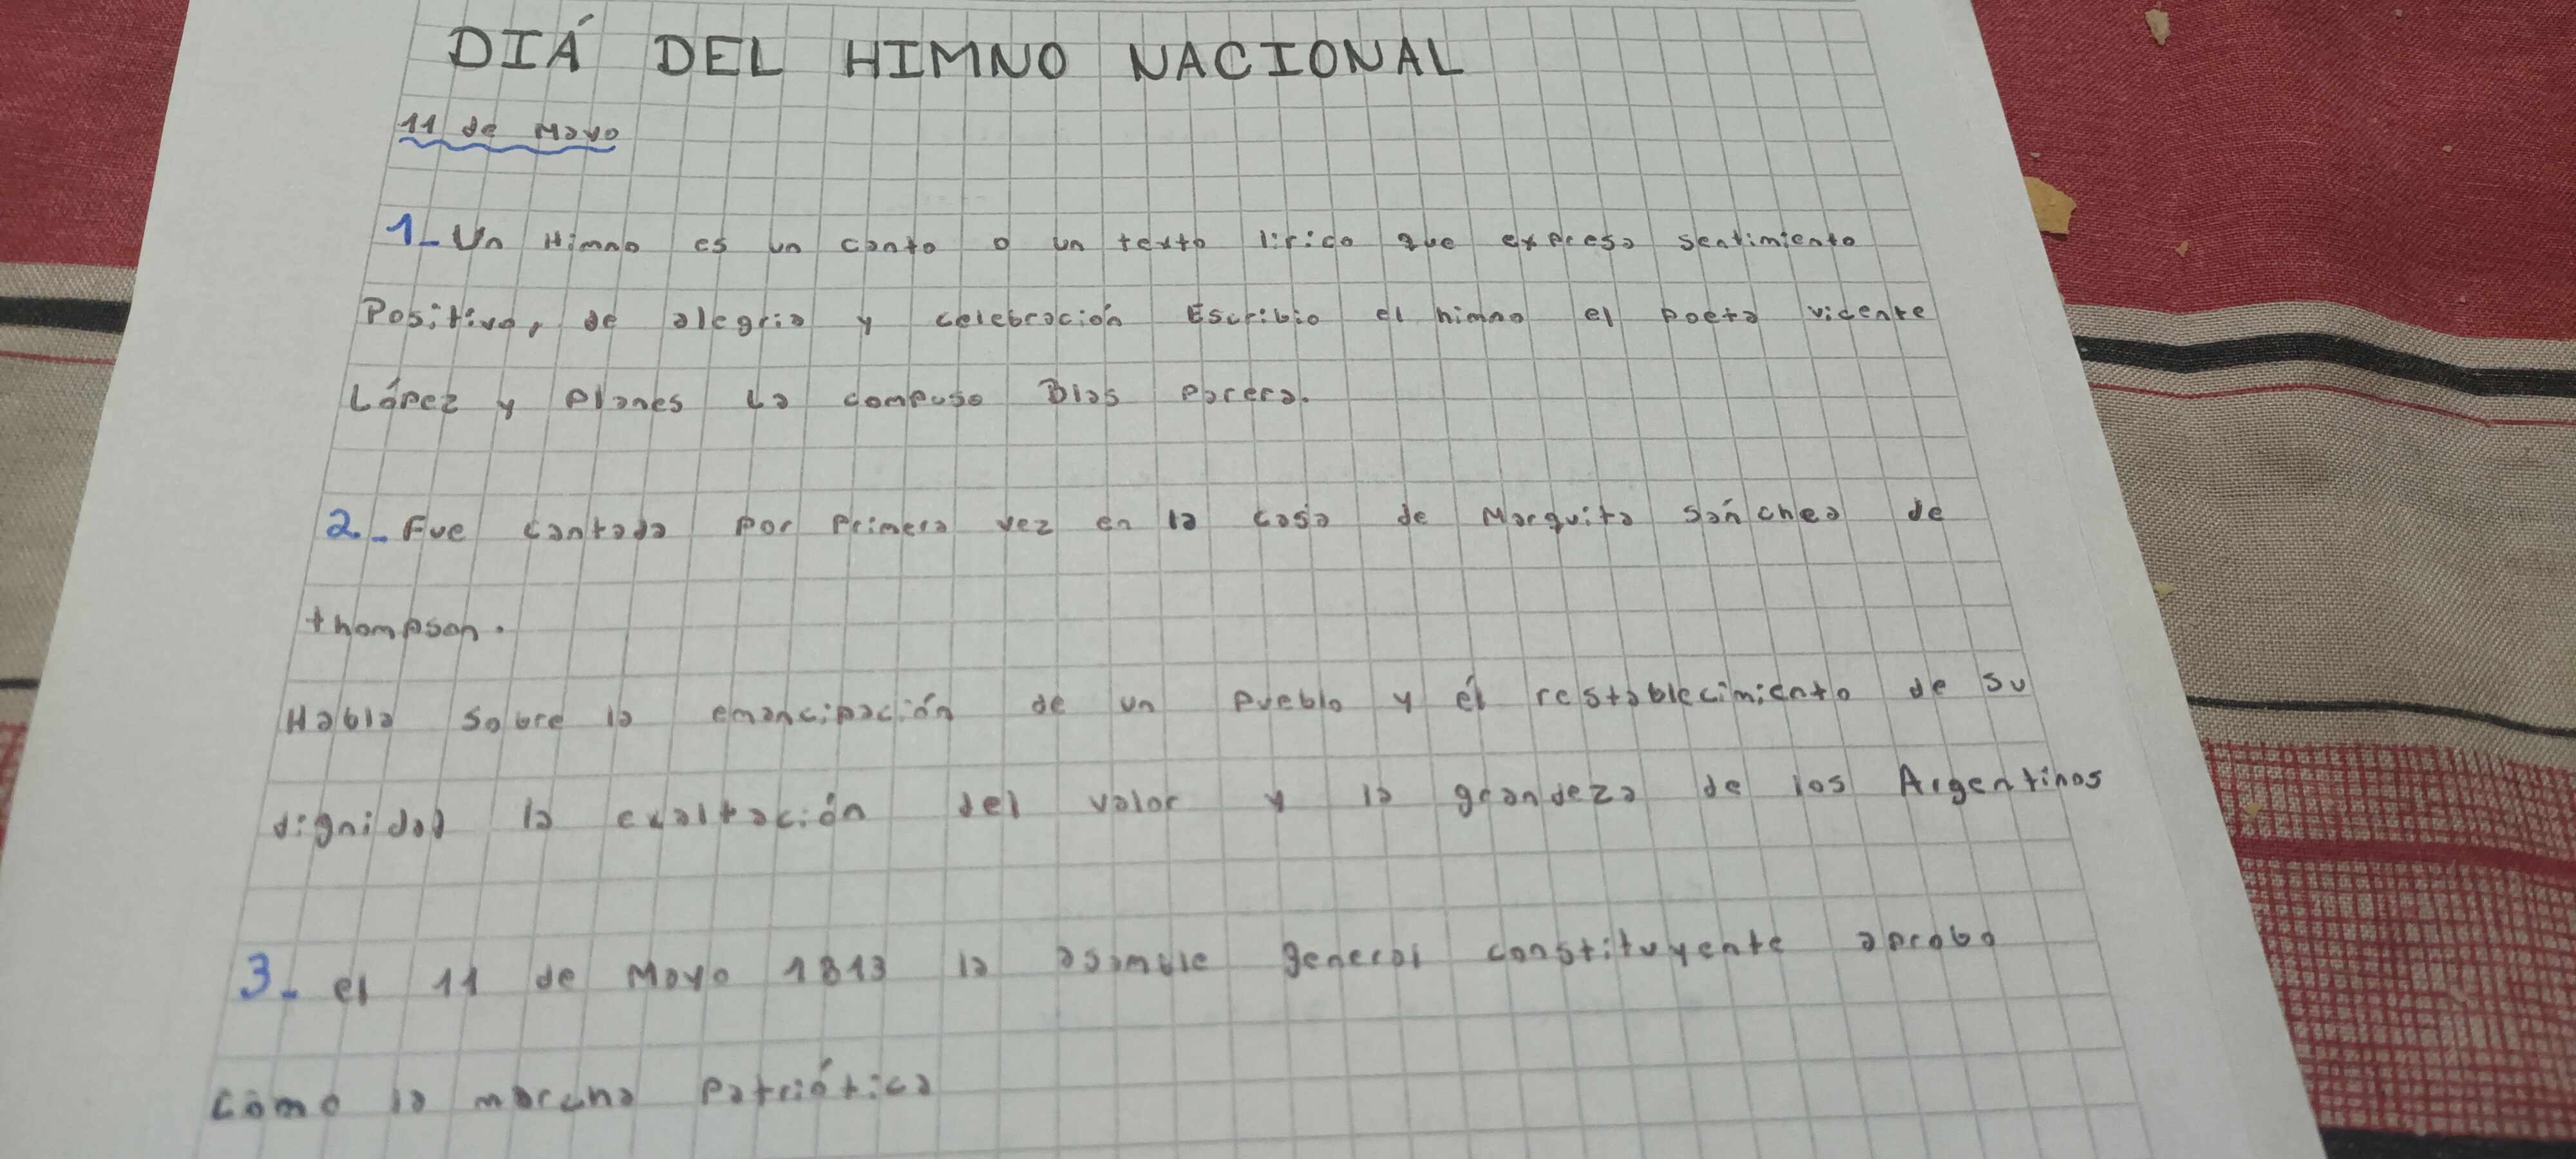 DIÁ DEL HIMNO NACIONAL
11 de Mayo
1_ Un Himno es un canto o un texto lirico que expresa sentimiento
Positivo, de alegria y celebración Escribio el himno el poeta vicente
López y Planes La compuso Blas parera.
2_ Fue cantada por primera vez en la casa de Marquita Sánchea de
thompson.
Habla sobre la emancipación de un Pueblo y él restablecimiento de su
dignidad la exaltación del valor y la grandeza de los Argentinos
3_ el 11 de Mayo 1813 la asamble general constituyente aprobo
como la marcha patriótica